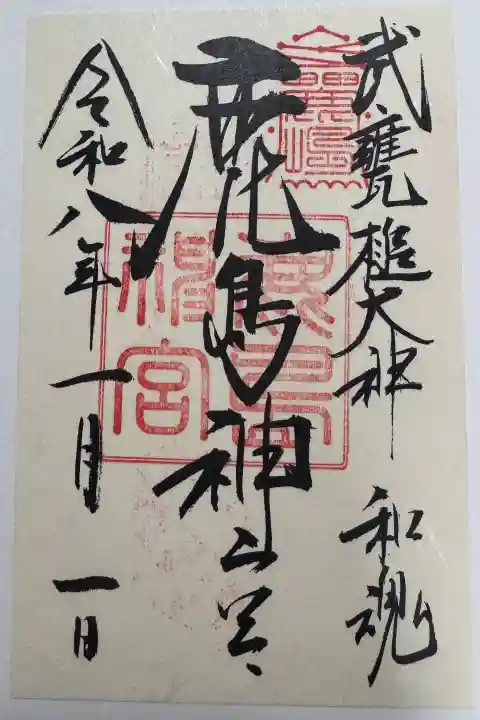 武甕槌大神 和魂
鹿島神宮
令和八年一月一日
神宮